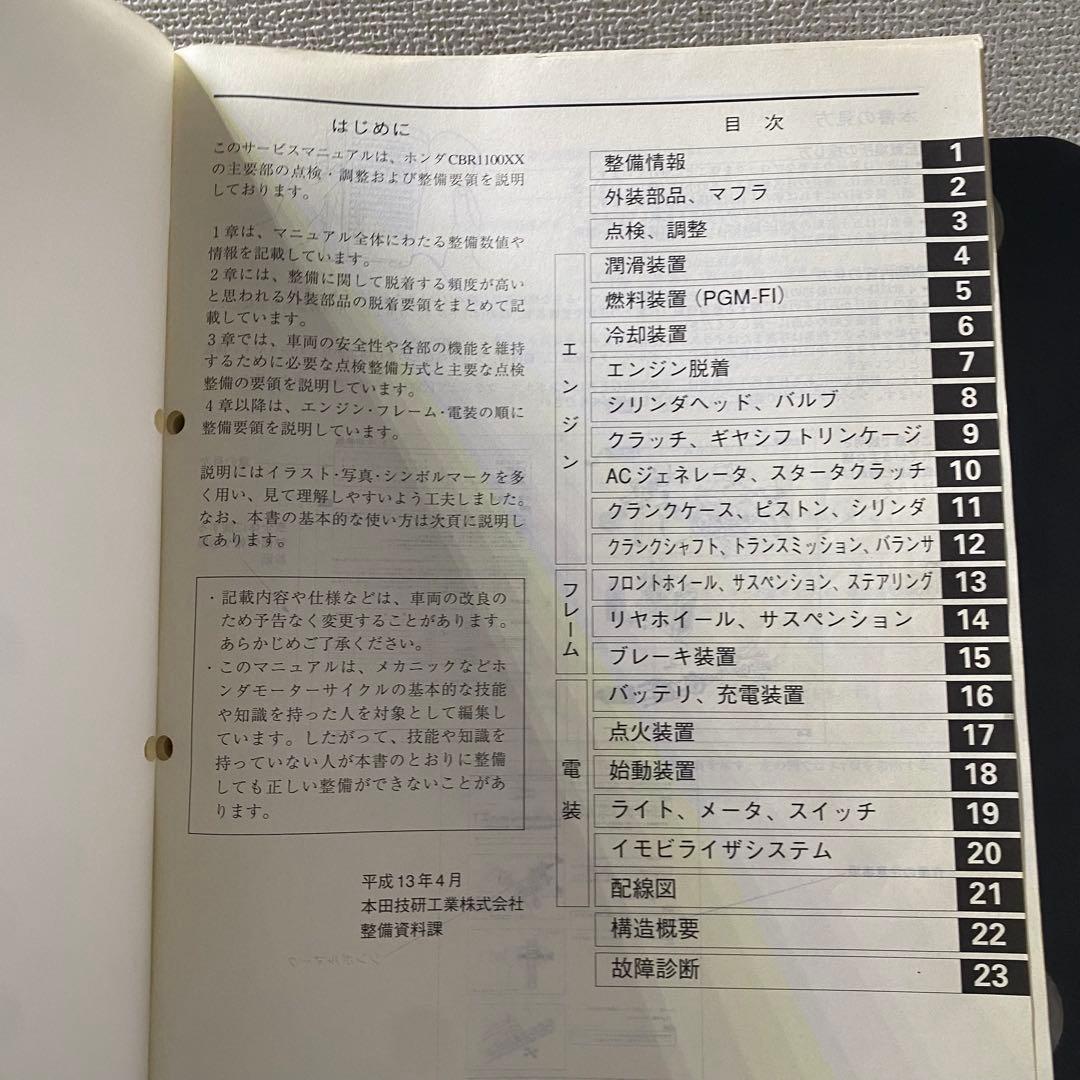 はじめに
このサービスマニュアルは、ホンダCBR1100XX
の主要部の点検・調整および整備要領を説明
しております。
1章は、マニュアル全体にわたる整備数値や
情報を記載しています。
2章には、整備に関して脱着する頻度が高い
と思われる外装部品の脱着要領をまとめて記
載しています。
3章では、車両の安全性や各部の機能を維持
するために必要な点検整備方式と主要な点検
整備の要領を説明しています。
4章以降は、エンジン・フレーム・電装の順に
整備要領を説明しています。
説明にはイラスト・写真・シンボルマークを多
く用い、見て理解しやすいよう工夫しました。
なお、本書の基本的な使い方は次頁に説明し
てあります。
・記載内容や仕様などは、車両の改良の
ため予告なく変更することがあります。
あらかじめご了承ください。
・このマニュアルは、メカニックなどホ
ンダモーターサイクルの基本的な技能
や知識を持った人を対象として編集し
ています。したがって、技能や知識を
持っていない人が本書のとおりに整備
しても正しい整備ができないことがあ
ります。
平成13年4月
本田技研工業株式会社
整備資料課
目 次
整備情報 1
外装部品、マフラ 2
点検、調整 3
エンジン
潤滑装置 4
燃料装置(PGM-FI) 5
冷却装置 6
エンジン脱着 7
シリンダヘッド、バルブ 8
クラッチ、ギヤシフトリンケージ 9
ACジェネレータ、スタータクラッチ 10
クランクケース、ピストン、シリンダ 11
クランクシャフト、トランスミッション、バランサ 12
フレーム
フロントホイール、サスペンション、ステアリング 13
リヤホイール、サスペンション 14
ブレーキ装置 15
電装
バッテリ、充電装置 16
点火装置 17
始動装置 18
ライト、メータ、スイッチ 19
イモビライザシステム 20
配線図 21
構造概要 22
故障診断 23